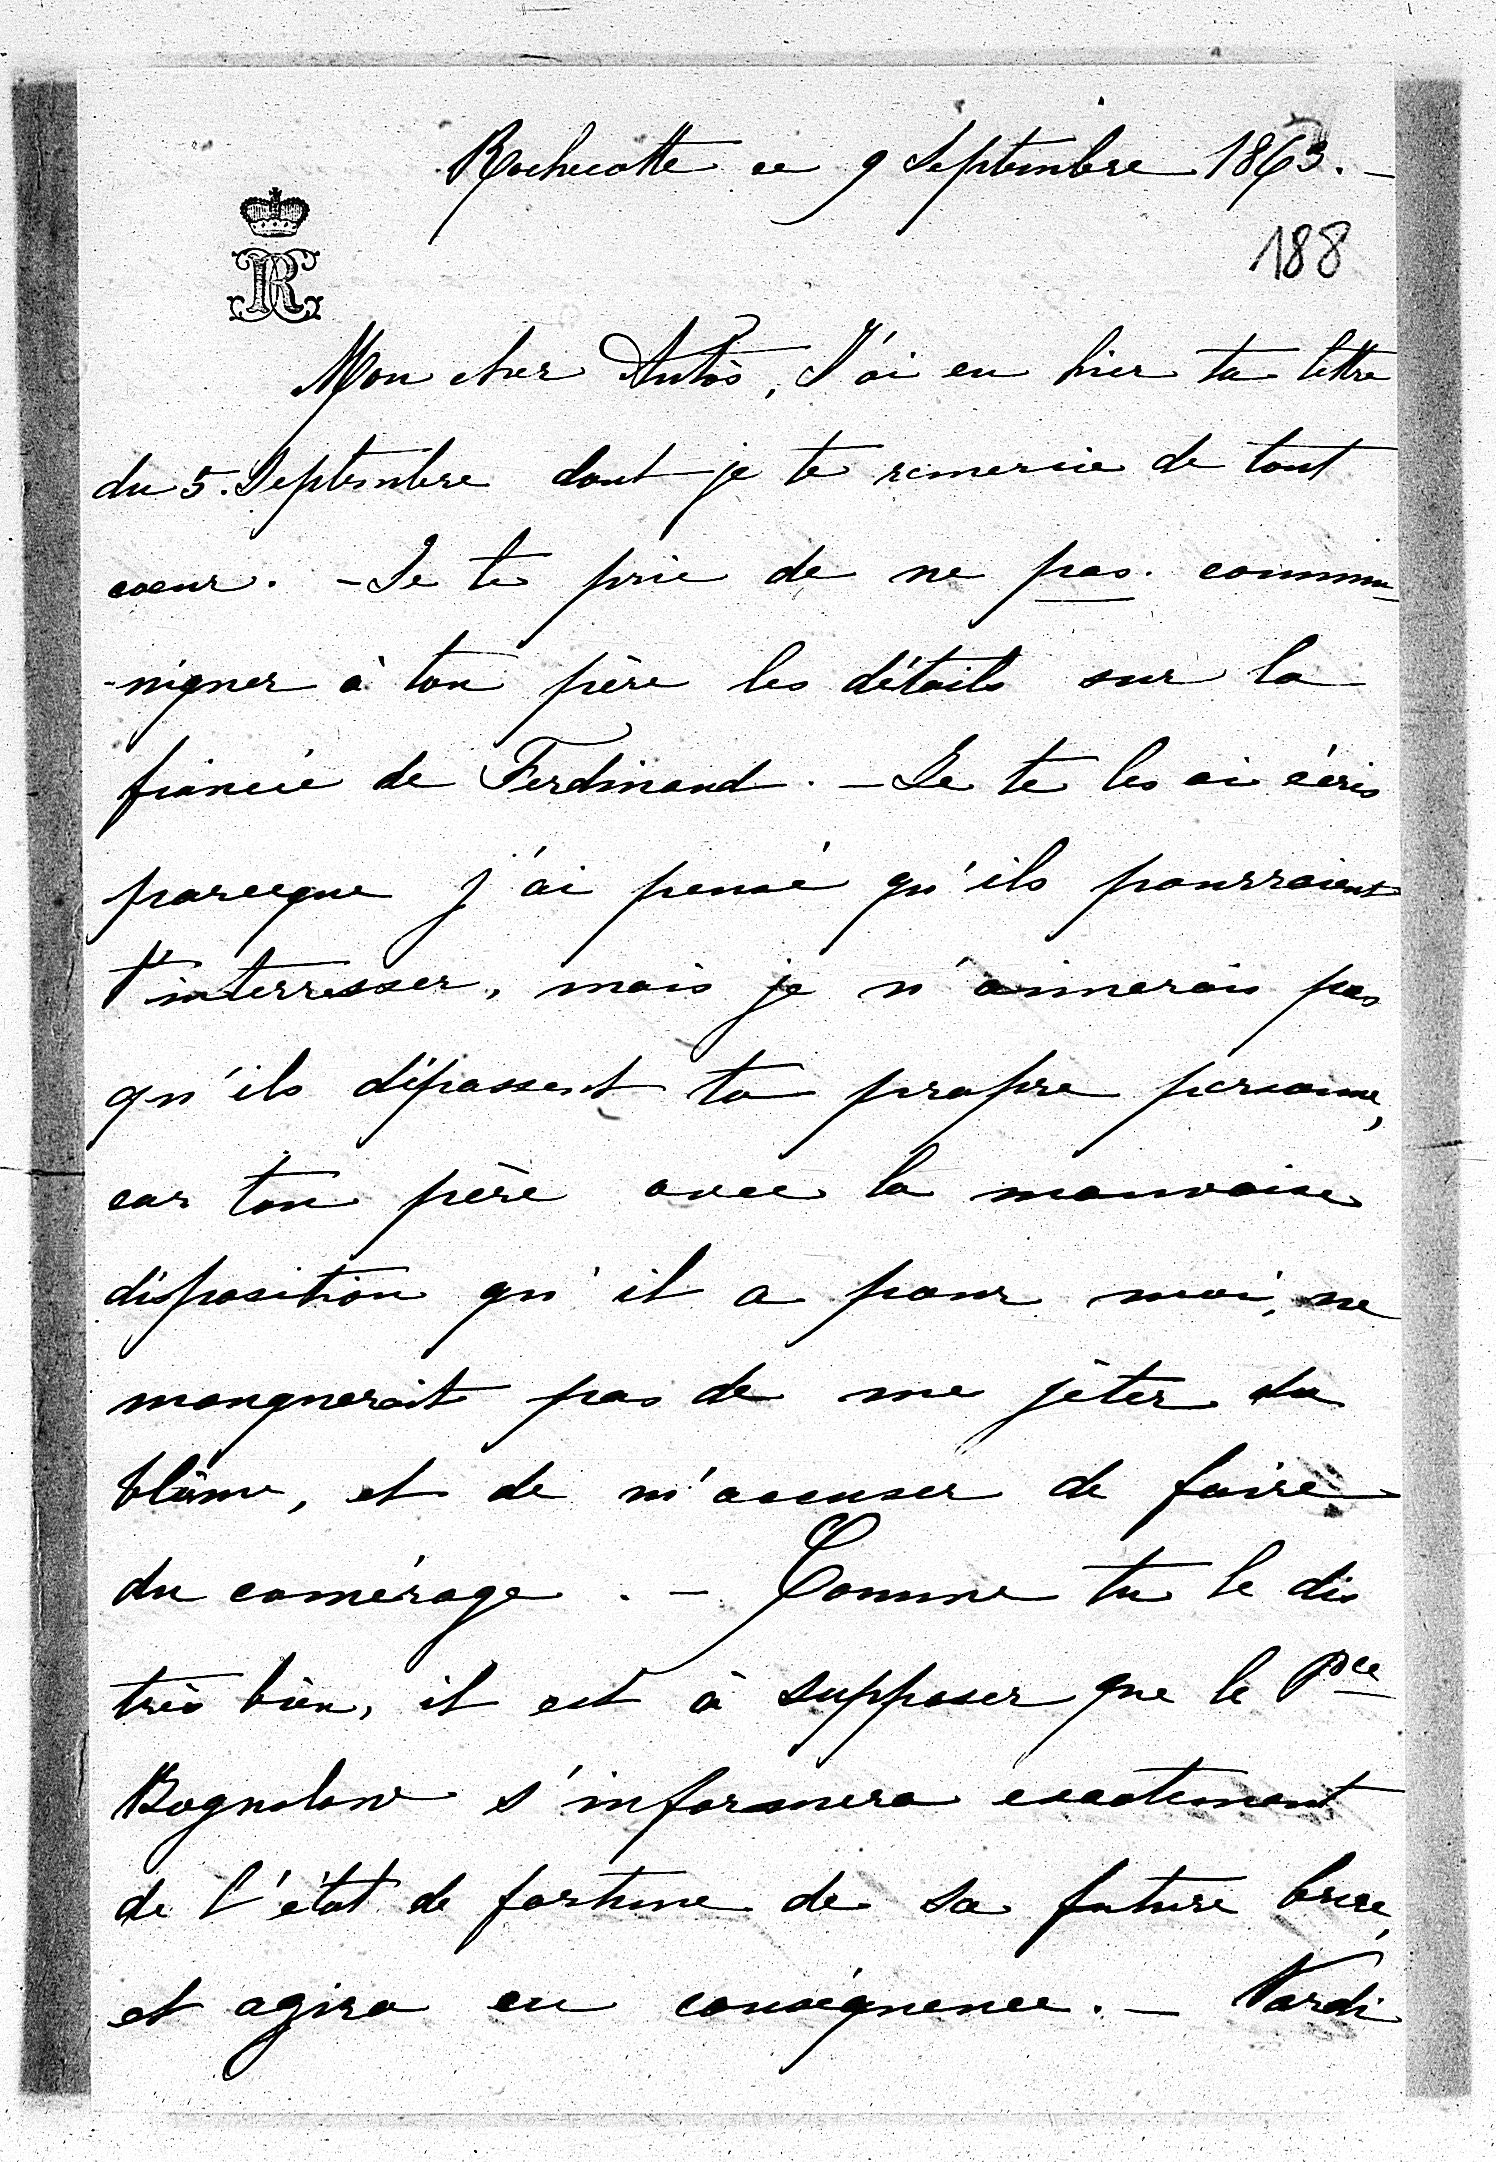 Rochecotte ce 9 Septembre 1863. -
188
Mon cher Antos, J'ai eu hier ta lettre
du 5. Septembre dont je te remercie de tout
coeur. - Je te prie de ne pas. commu-
-niquer à ton père les détails sur la
fiancée de Ferdinand. - Je te les ai écris
parceque j'ai pensé qu'ils pourraient
t'interresser, mais je n'aimerais pas
qu'ils dépassent ta propre personne,
car ton père avec la mauvaise
disposition qu'il a pour moi, ne
manquerait pas de me jêter du
blâme, et de m'accuser de faire
du comérage. - Comme tu le dis
très bien, il est à supposer que le Pce
Boguslaw s'informera exactement
de l'état de fortune de sa future brue,
et agira en conséquence. -